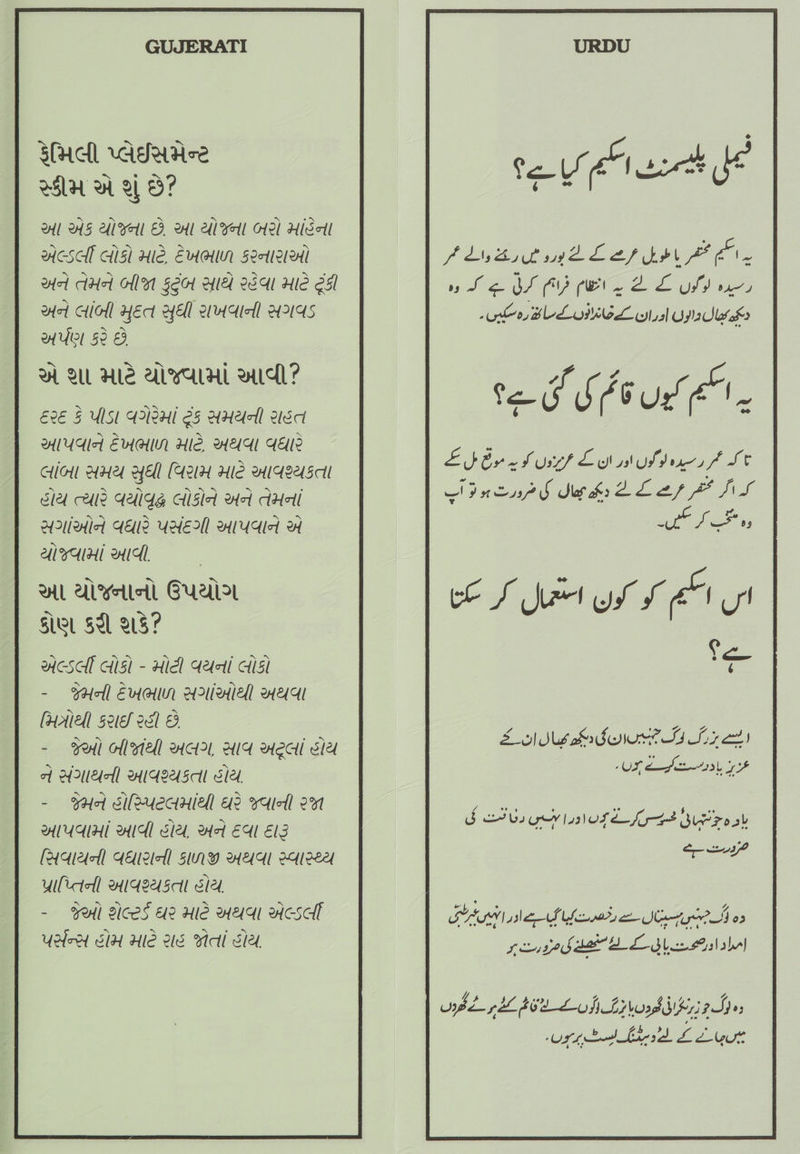 GUJERATI
ફેમિલી પ્લેઈસમેન્ટ
સ્કીમ એ શું છે?
આ એક યોજના છે. આ યોજના બરો માંહેના
એલ્ડર્લી લોકો માટે, દેખભાળ કરનારાઓ
અને તેમને બીજા કુટુંબ સાથે રહેવા માટે ટૂંકી
અને લાંબી મુદત સુધી રાખવાની સગવડ
અર્પણ કરે છે.
એ શા માટે યોજવામાં આવી?
દરદ કે પીડા વગેરેમાં ટૂંક સમયની રાહત
આપવાને દેખભાળ માટે, અથવા વધારે
લાંબા સમય સુધી વિરામ માટે આવશ્યકતા
હોય ત્યારે વયોવૃદ્ધ લોકોને અને તેમનાં
સગાંઓને વધારે પસંદગી આપવાને એ
યોજવામાં આવી.
આ યોજનાનો ઉપયોગ
કોણ કરી શકે?
એલ્ડર્લી લોકો - મોટી વયનાં લોકો
- જેમની દેખભાળ સગાંઓથી અથવા
મિત્રોથી કરાઈ રહી છે.
- જેઓ બીજાંથી અલગ, સાવ અટૂલાં હોય
ને સંગાથની આવશ્યકતા હોય.
- જેમને હોસ્પિટલમાંથી ઘરે જવાની રજા
આપવામાં આવી હોય, અને દવા દારૂ
સિવાયની વધારાની કાળજી અથવા સ્વાસ્થ્ય
પ્રાપ્તિની આવશ્યકતા હોય.
- જેઓ શેલ્ટર્ડ ઘર માટે અથવા એલ્ડર્લી
પર્સન્સ હોમ માટે રાહ જોતાં હોય.
URDU
فیملی پلیسمنٹ اسکیم کیا ہے؟
یہ اسکیم مختصر یا طویل عرصے کے لئے بورو میں رہنے والے عمر
رسیدہ لوگوں کے لئے یہ انتظام فراہم کرتی ہے کہ وہ
دیکھ بھال والوں اور ان کے خاندانوں کے ساتھ رہ سکیں۔
یہ اسکیم کیوں قائم کی گئی ہے؟
تا کہ عمر رسیدہ لوگوں اور ان کے عزیزوں کو یہ موقع مل سکے
کہ اگر مختصر عرصے کے لئے دیکھ بھال کی ضرورت ہو تو آپ
وہ منتخب کر سکیں۔
اس اسکیم کو کون استعمال کر سکتا
ہے؟
ایسے بزرگ لوگ جنہیں ان کی دیکھ بھال ان کے
عزیز یا دوست کرتے ہوں۔
یا وہ جو تنہائی محسوس کرتے ہوں اور انہیں رفاقت کی
ضرورت ہے
وہ لوگ جنہیں ہسپتال سے رخصت کیا گیا ہے اور انہیں غیر طبی
امداد اور صحت یابی کے لئے سنبھلنے کی ضرورت ہو
وہ لوگ جو زیر نگرانی گھروں یا بزرگ لوگوں کے لئے قائم کئے ہوئے گھروں
میں جانے کے لئے ویٹنگ لسٹ پر ہوں۔